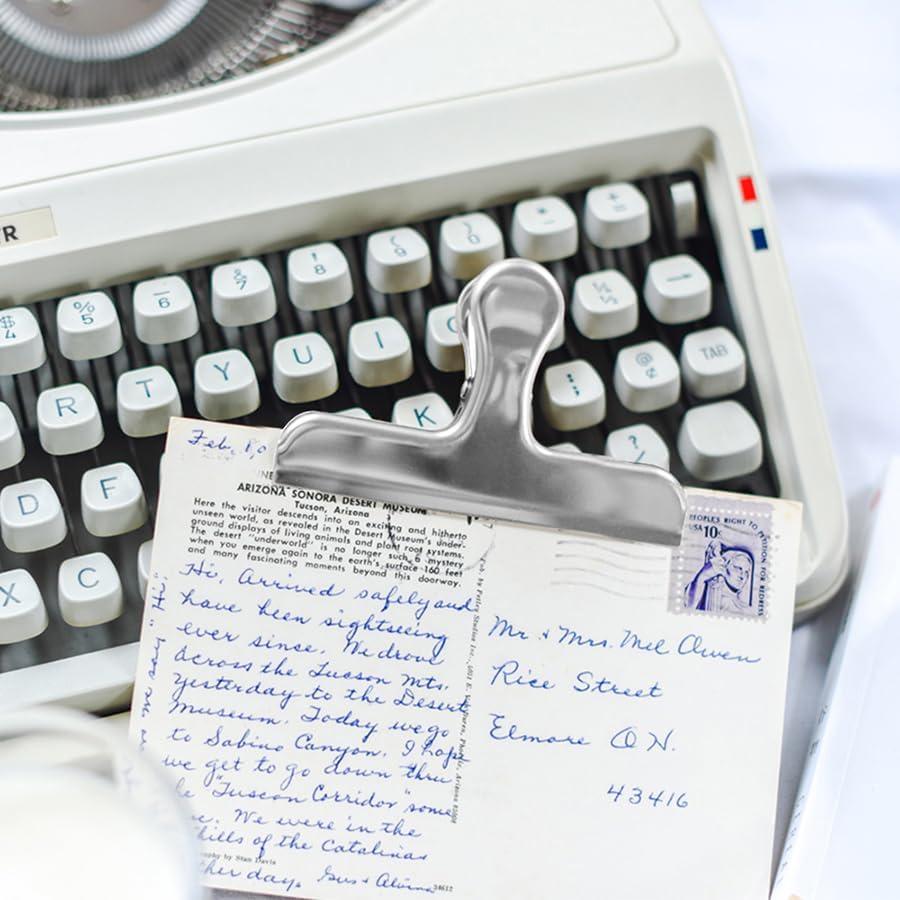 R
$
4
%
5
6
&
7
!
8
(
9
)
0
*
-
+
=
¼
½
R
T
Y
U
I
K
:
;
@
¢
TAB
?
/
D
F
X
C
Feb.
ARIZONA SONORA DESERT MUSEUM
Tucson, Arizona
Here the visitor descends into an exciting and hitherto
unseen world, as revealed in the Desert Museum's under-
ground displays of living animals and plant root systems.
The desert "underworld" is no longer such a mystery
when you emerge again to the earth's surface 160 feet
and many fascinating moments beyond this doorway.
Hi, Arrived safely and
have been sightseeing
ever since. We drove
across the Tucson Mts.
yesterday to the Desert
Museum. Today we go
to Sabino Canyon. I hope
we get to go down thru
"Tucson Corridor" some
We were in the
hills of the Catalinas
her day. Gus & Alvina
by Stan Davis
34612
we say "Hi"
PEOPLES RIGHT TO PETITION FOR REDRESS
USA 10c
Mr. & Mrs. Mel Owen
Rice Street
Elmore OH.
43416